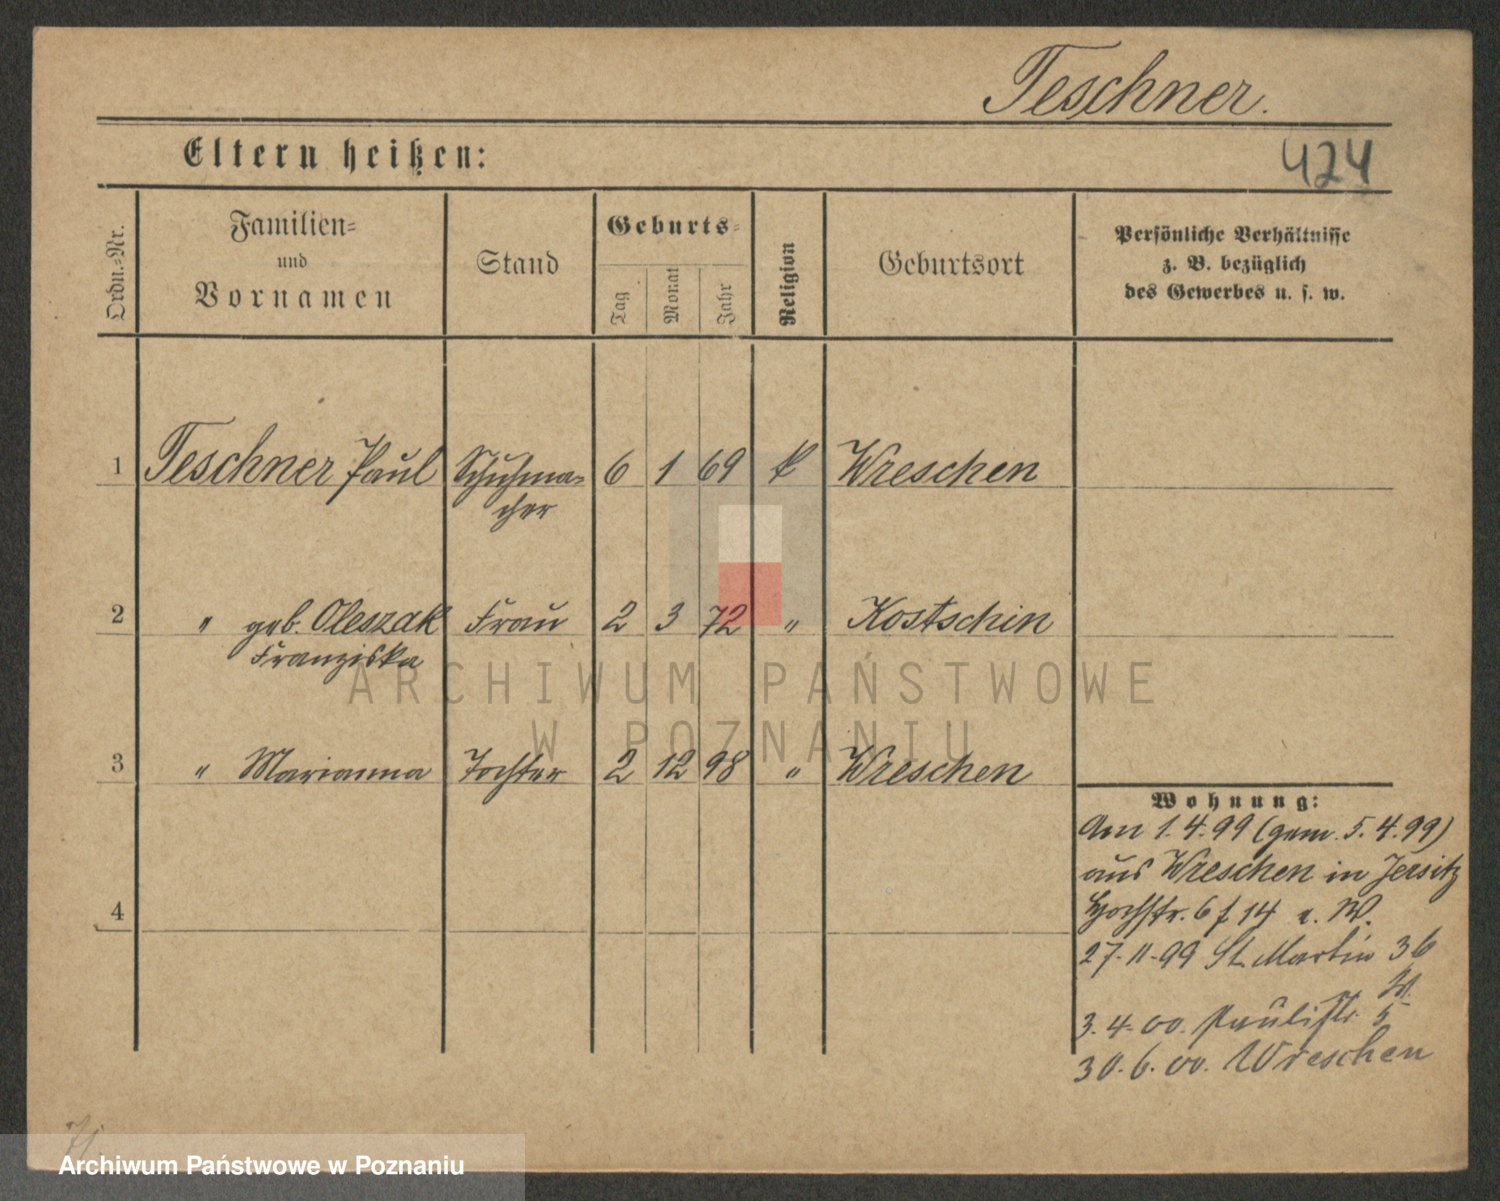 Teschner.
Eltern heißen:
424
Ordn.-Nr.
Familien-
und
Vornamen
Stand
Geburts-
Tag
Monat
Jahr
Religion
Geburtsort
Persönliche Verhältnisse
z. B. bezüglich
des Gewerbes u. s. w.
1 Teschner Paul Schuhma- 6 1 69 k Wreschen
cher
2 " geb. Oleszak Frau 2 3 72 " Kostschin
Franziska
3 " Marianna Tochter 2 12 98 " Wreschen
4
Wohnung:
Am 1. 4. 99 (gem. 5. 4. 99)
aus Wreschen in Jersitz
Hochstr. 6 f. 14 W.
27-11-99 St. Martin 36
W.
3. 4. 00. Paulistr. 5
30. 6. 00. Wreschen
ARCHIWUM PAŃSTWOWE
W POZNANIU
Archiwum Państwowe w Poznaniu